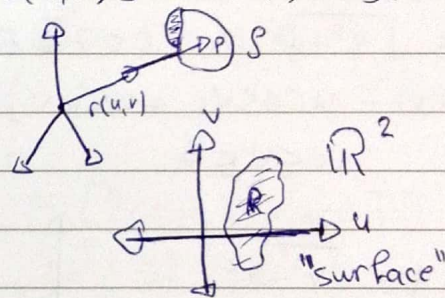 P S
r(u,v)
v
ℝ²
R
u
"surface"